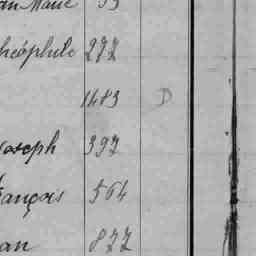 an Marie 53
héophile 272
1483 D
Joseph 397
rançois 564
an 877